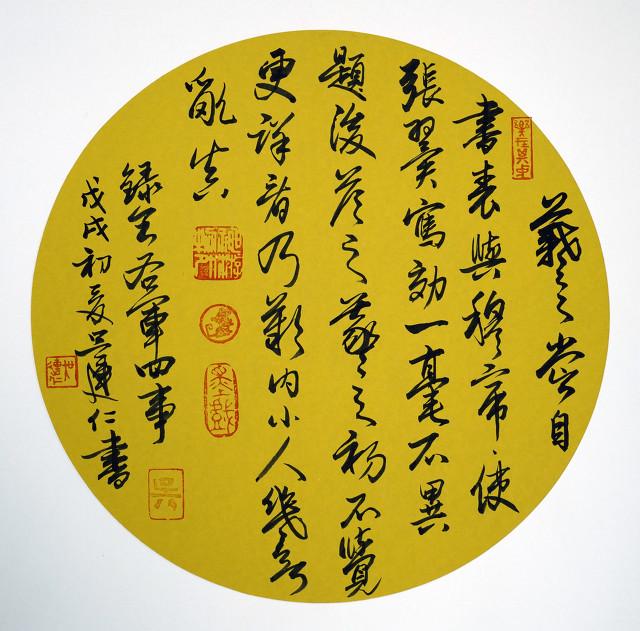 羲之嘗自
書表與穆帝使
張翼寫効一毫不異
題後答之羲之初不覺
更詳看乃歎曰小人幾欲
亂真
錄王右軍四事
戊戌初夏吳仁書